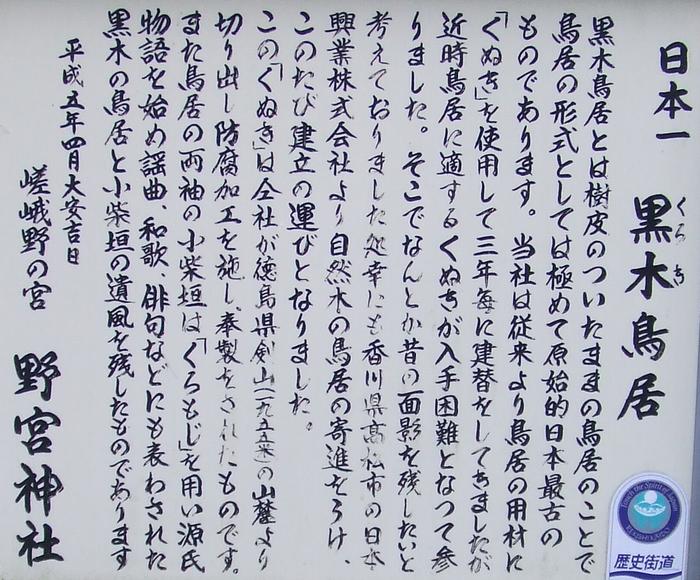 日本一 黒木鳥居
くろき
黒木鳥居とは樹皮のついたままの鳥居のことで
鳥居の形式としては極めて原始的日本最古の
ものであります。当社は従来より鳥居の用材に
「くぬぎ」を使用して三年毎に建替をしてゐましたが
近時鳥居に適するくぬぎが入手困難となつて参
りました。そこでなんとか昔の面影を残したいと
考えておりました処幸にも香川県高松市の日本
興業株式会社より自然木の鳥居の寄進をうけ、
このたび建立の運びとなりました。
この「くぬぎ」は仝社が徳島県剣山一九五五米の山麓より
切り出し防腐加工を施し、奉製をされたものです。
また鳥居の両袖の小柴垣は「くろもじ」を用い源氏
物語を始め謡曲、和歌、俳句などにも表わされた
黒木の鳥居と小柴垣の遺風を残したものであります
平成五年四月大安吉日
嵯峨野の宮 野宮神社
歴史街道